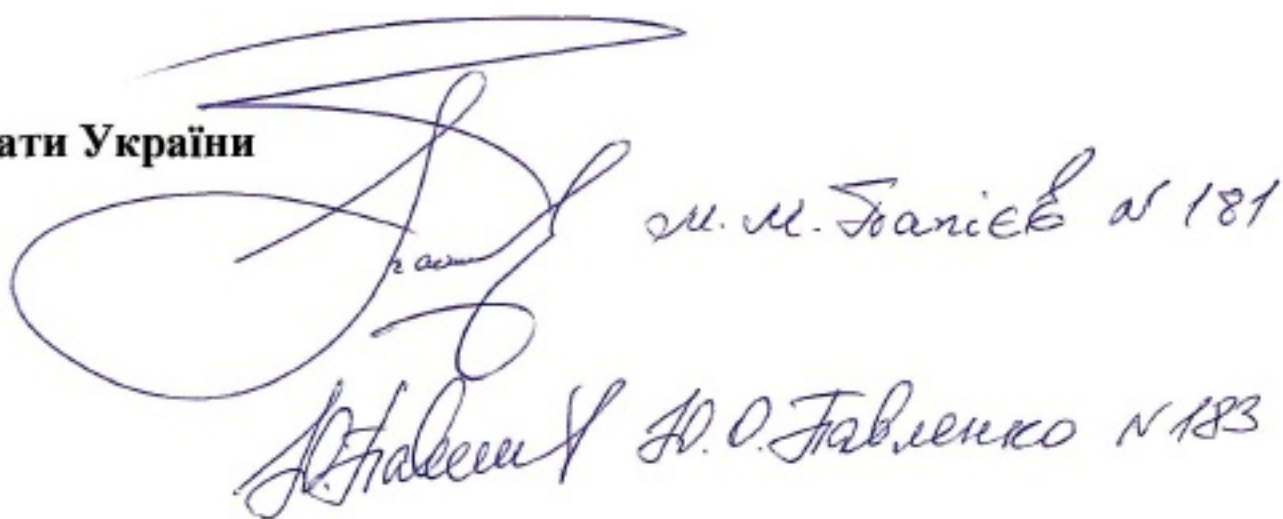 ати України
М. М. Папієв N 181
Ю. О. Павленко N 183